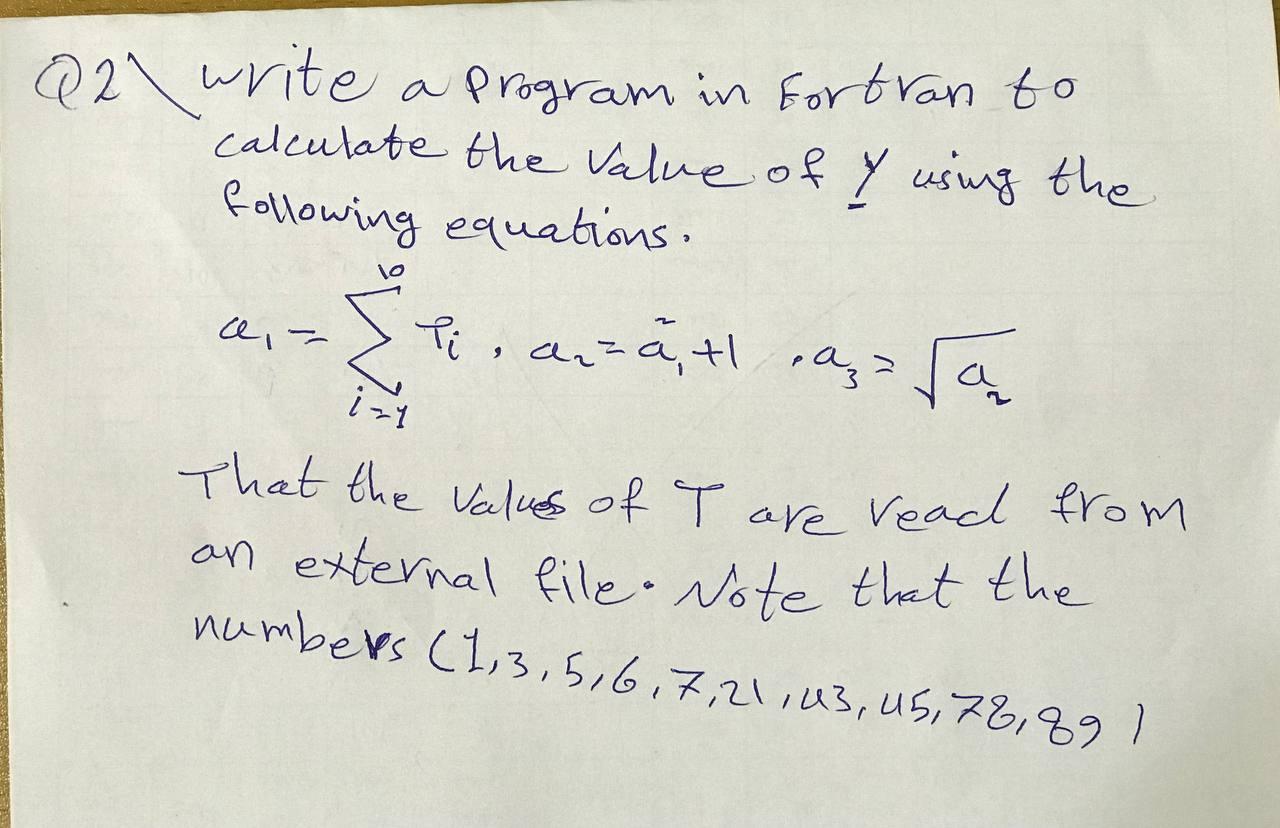 Q2\ write a program in Fortran to
calculate the value of Y using the
following equations.
a₁ = ∑_{i=1}^{10} Tᵢ , a₂ = a₁² + 1 , a₃ = √a₂
That the values of T are read from
an external file. Note that the
numbers (1,3,5,6,7,21,43,45,78,89)